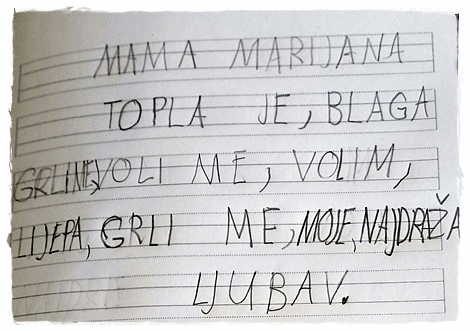 MAMA MARIJANA
TOPLA JE, BLAGA
VOLI ME, VOLIM,
LIJEPA, GRLI ME, MOJE, NAJDRAŽA
LJUBAV.